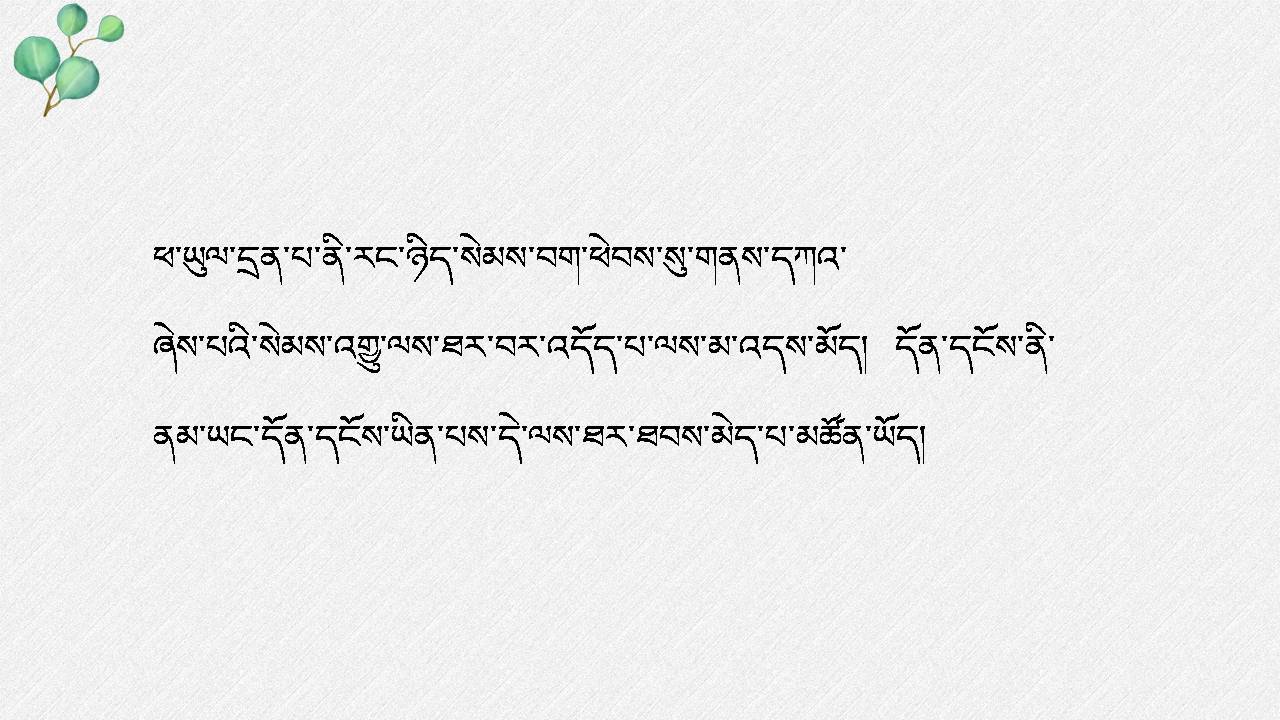 ཕ་ཡུལ་དྲན་པ་ནི་རང་ཉིད་སེམས་བག་ཕེབས་སུ་གནས་དཀའ་
ཞེས་པའི་སེམས་འགྱུ་ལས་ཐར་བར་འདོད་པ་ལས་མ་འདས་མོད། དོན་དངོས་ནི་
ནམ་ཡང་དོན་དངོས་ཡིན་པས་དེ་ལས་ཐར་ཐབས་མེད་པ་མཚོན་ཡོད།